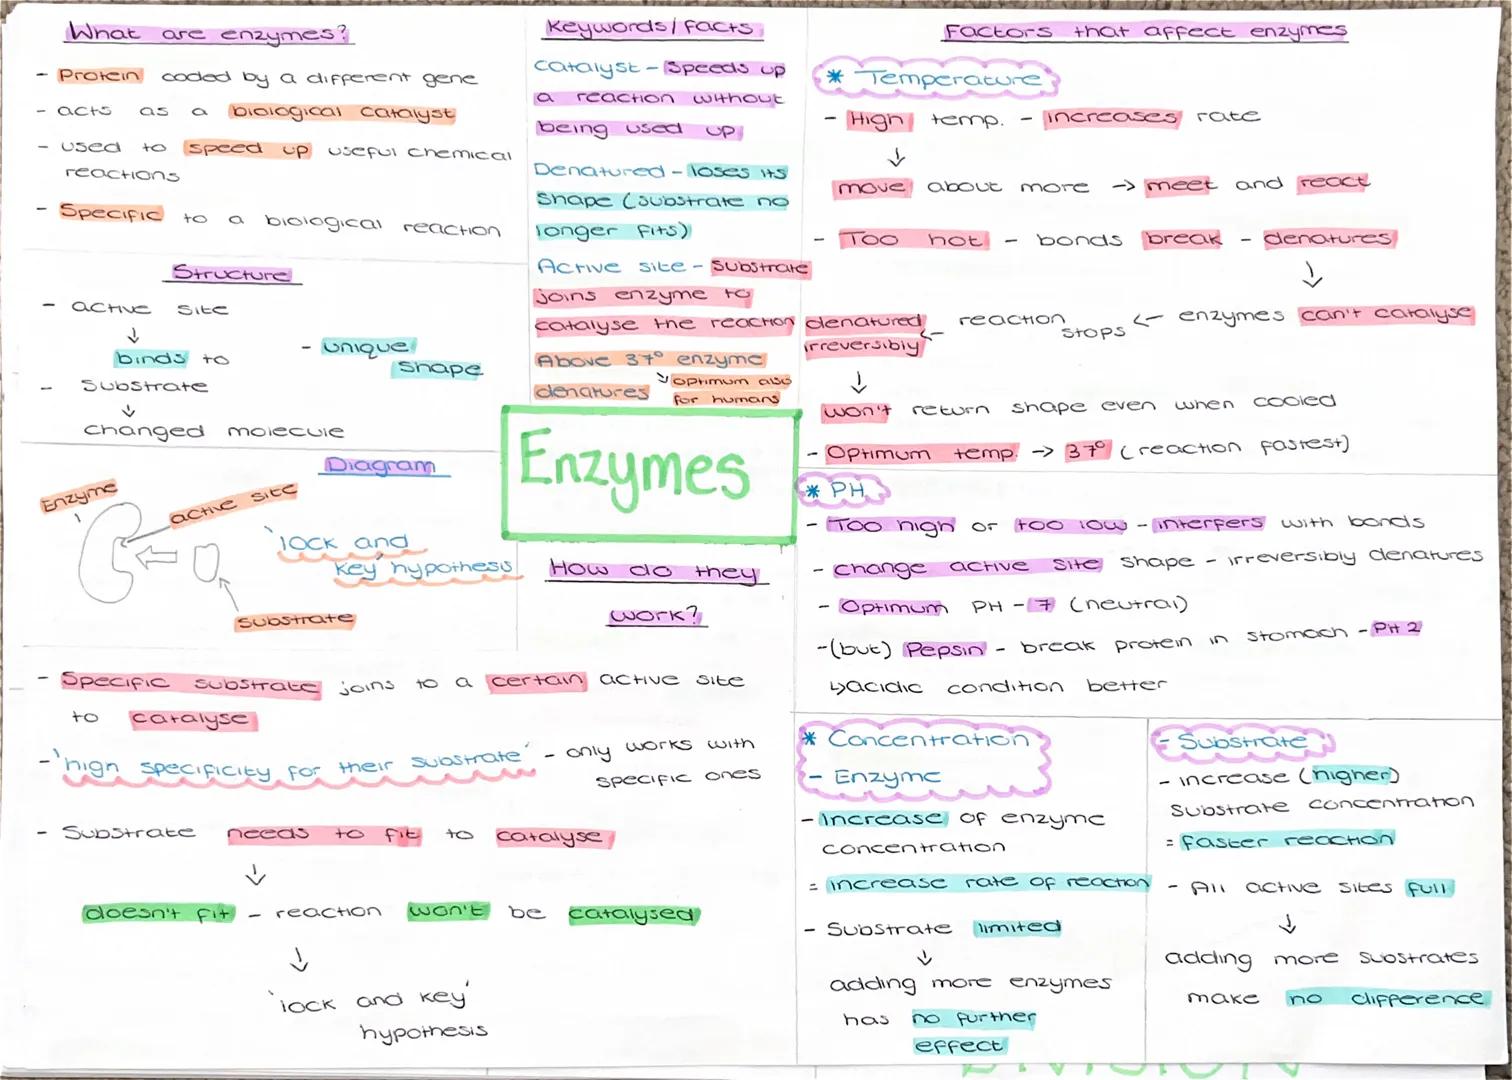 What are enzymes?
- Protein coded by a different gene
- acts as a biological catalyst
- used to speed up useful chemical
reactions
- Specific to a biological reaction
Structure
- active site
↓
binds to
- Substrate
↓
changed molecule
- unique
shape
Diagram
Enzyme
active site
'lock and
key' hypothesis
substrate
Keywords/facts
Catalyst - speeds up
a reaction without
being used up
Denatured - loses its
Shape (substrate no
longer fits)
Active site - substrate
joins enzyme to
catalyse the reaction
Above 37° enzyme
denatures ↘ optimum also
for humans
Enzymes
How do they
work?
- Specific substrate joins to a certain active site
to catalyse
- 'high specificity for their substrate' - only works with
specific ones
- Substrate needs to fit to catalyse
↓
doesn't fit - reaction won't be catalysed
↓
'lock and key'
hypothesis
Factors that affect enzymes
* Temperature
- High temp. - increases rate
↓
move about more → meet and react
- Too hot - bonds break - denatures
↓
denatured ← reaction stops ← enzymes can't catalyse
irreversibly
↓
won't return shape even when cooled
- Optimum temp. → 37° (reaction fastest)
* PH
- Too high or too low - interfers with bonds
- change active site shape - irreversibly denatures
- Optimum PH - 7 (neutral)
-(but) Pepsin - break protein in stomach - PH 2
↳acidic condition better
* Concentration
- Enzyme
- Increase of enzyme
concentration
= increase rate of reaction
- Substrate limited
↓
adding more enzymes
has no further
effect
- Substrate
- increase (higher)
substrate concentration
= faster reaction
- All active sites full
↓
adding more substrates
make no difference